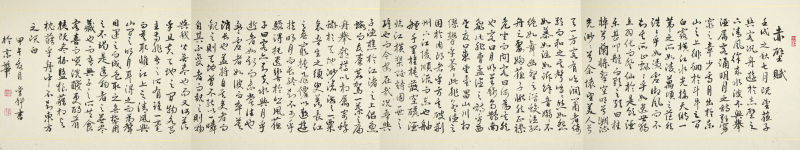 赤壁賦
壬戌之秋七月既望蘇子
與客泛舟遊於赤壁之
下清風徐來水波不興舉
酒屬客誦明月之詩歌窈
窕之章少焉月出於東
山之上徘徊於斗牛之間
白露橫江水光接天縱一
葦之所如凌萬頃之茫然
浩浩乎如馮虛御風而不
知其所止飄飄乎如遺世獨
立羽化而登仙於是飲酒
樂甚扣舷而歌之歌曰桂
棹兮蘭槳擊空明兮泝流
光渺渺兮予懷望美人兮
天一方客有吹洞簫者倚
歌而和之其聲嗚嗚然如
怨如慕如泣如訴餘音嫋
嫋不絕如縷舞幽壑之潛蛟泣孤
舟之嫠婦蘇子愀然正襟
危坐而問客曰何為其然
也客曰月明星稀烏鵲南
飛此非曹孟德之詩乎西
望夏口東望武昌山川相
繆鬱乎蒼蒼此非孟德之
困於周郎者乎方其破荊
州下江陵順流而東也舳
艫千里旌旗蔽空釃酒
臨江橫槊賦詩固一世之
雄也而今安在哉況吾與
子漁樵於江渚之上侶魚
蝦而友麋鹿駕一葉之扁
舟舉匏樽以相屬寄蜉
蝣於天地渺滄海之一粟
哀吾生之須臾羨長江
之無窮挾飛仙以遨遊
抱明月而長終知不可乎
驟得託遺響於悲風蘇
子曰客亦知夫水與月乎
逝者如斯而未嘗往也
盈虛者如彼而卒莫
消長也蓋將自其變者而
觀之則天地曾不能以一瞬
自其不變者而觀之則物
與我皆無盡也而又何羨
乎且夫天地之間物各有
主苟非吾之所有雖一毫
而莫取惟江上之清風與
山間之明月耳得之而為聲
目遇之而成色取之無禁用
之不竭是造物者之無盡
藏也而吾與子之所共食
客喜而笑洗盞更酌肴
核既盡杯盤狼藉相與
枕藉乎舟中不知東方
之既白
甲午 月 書
於京華